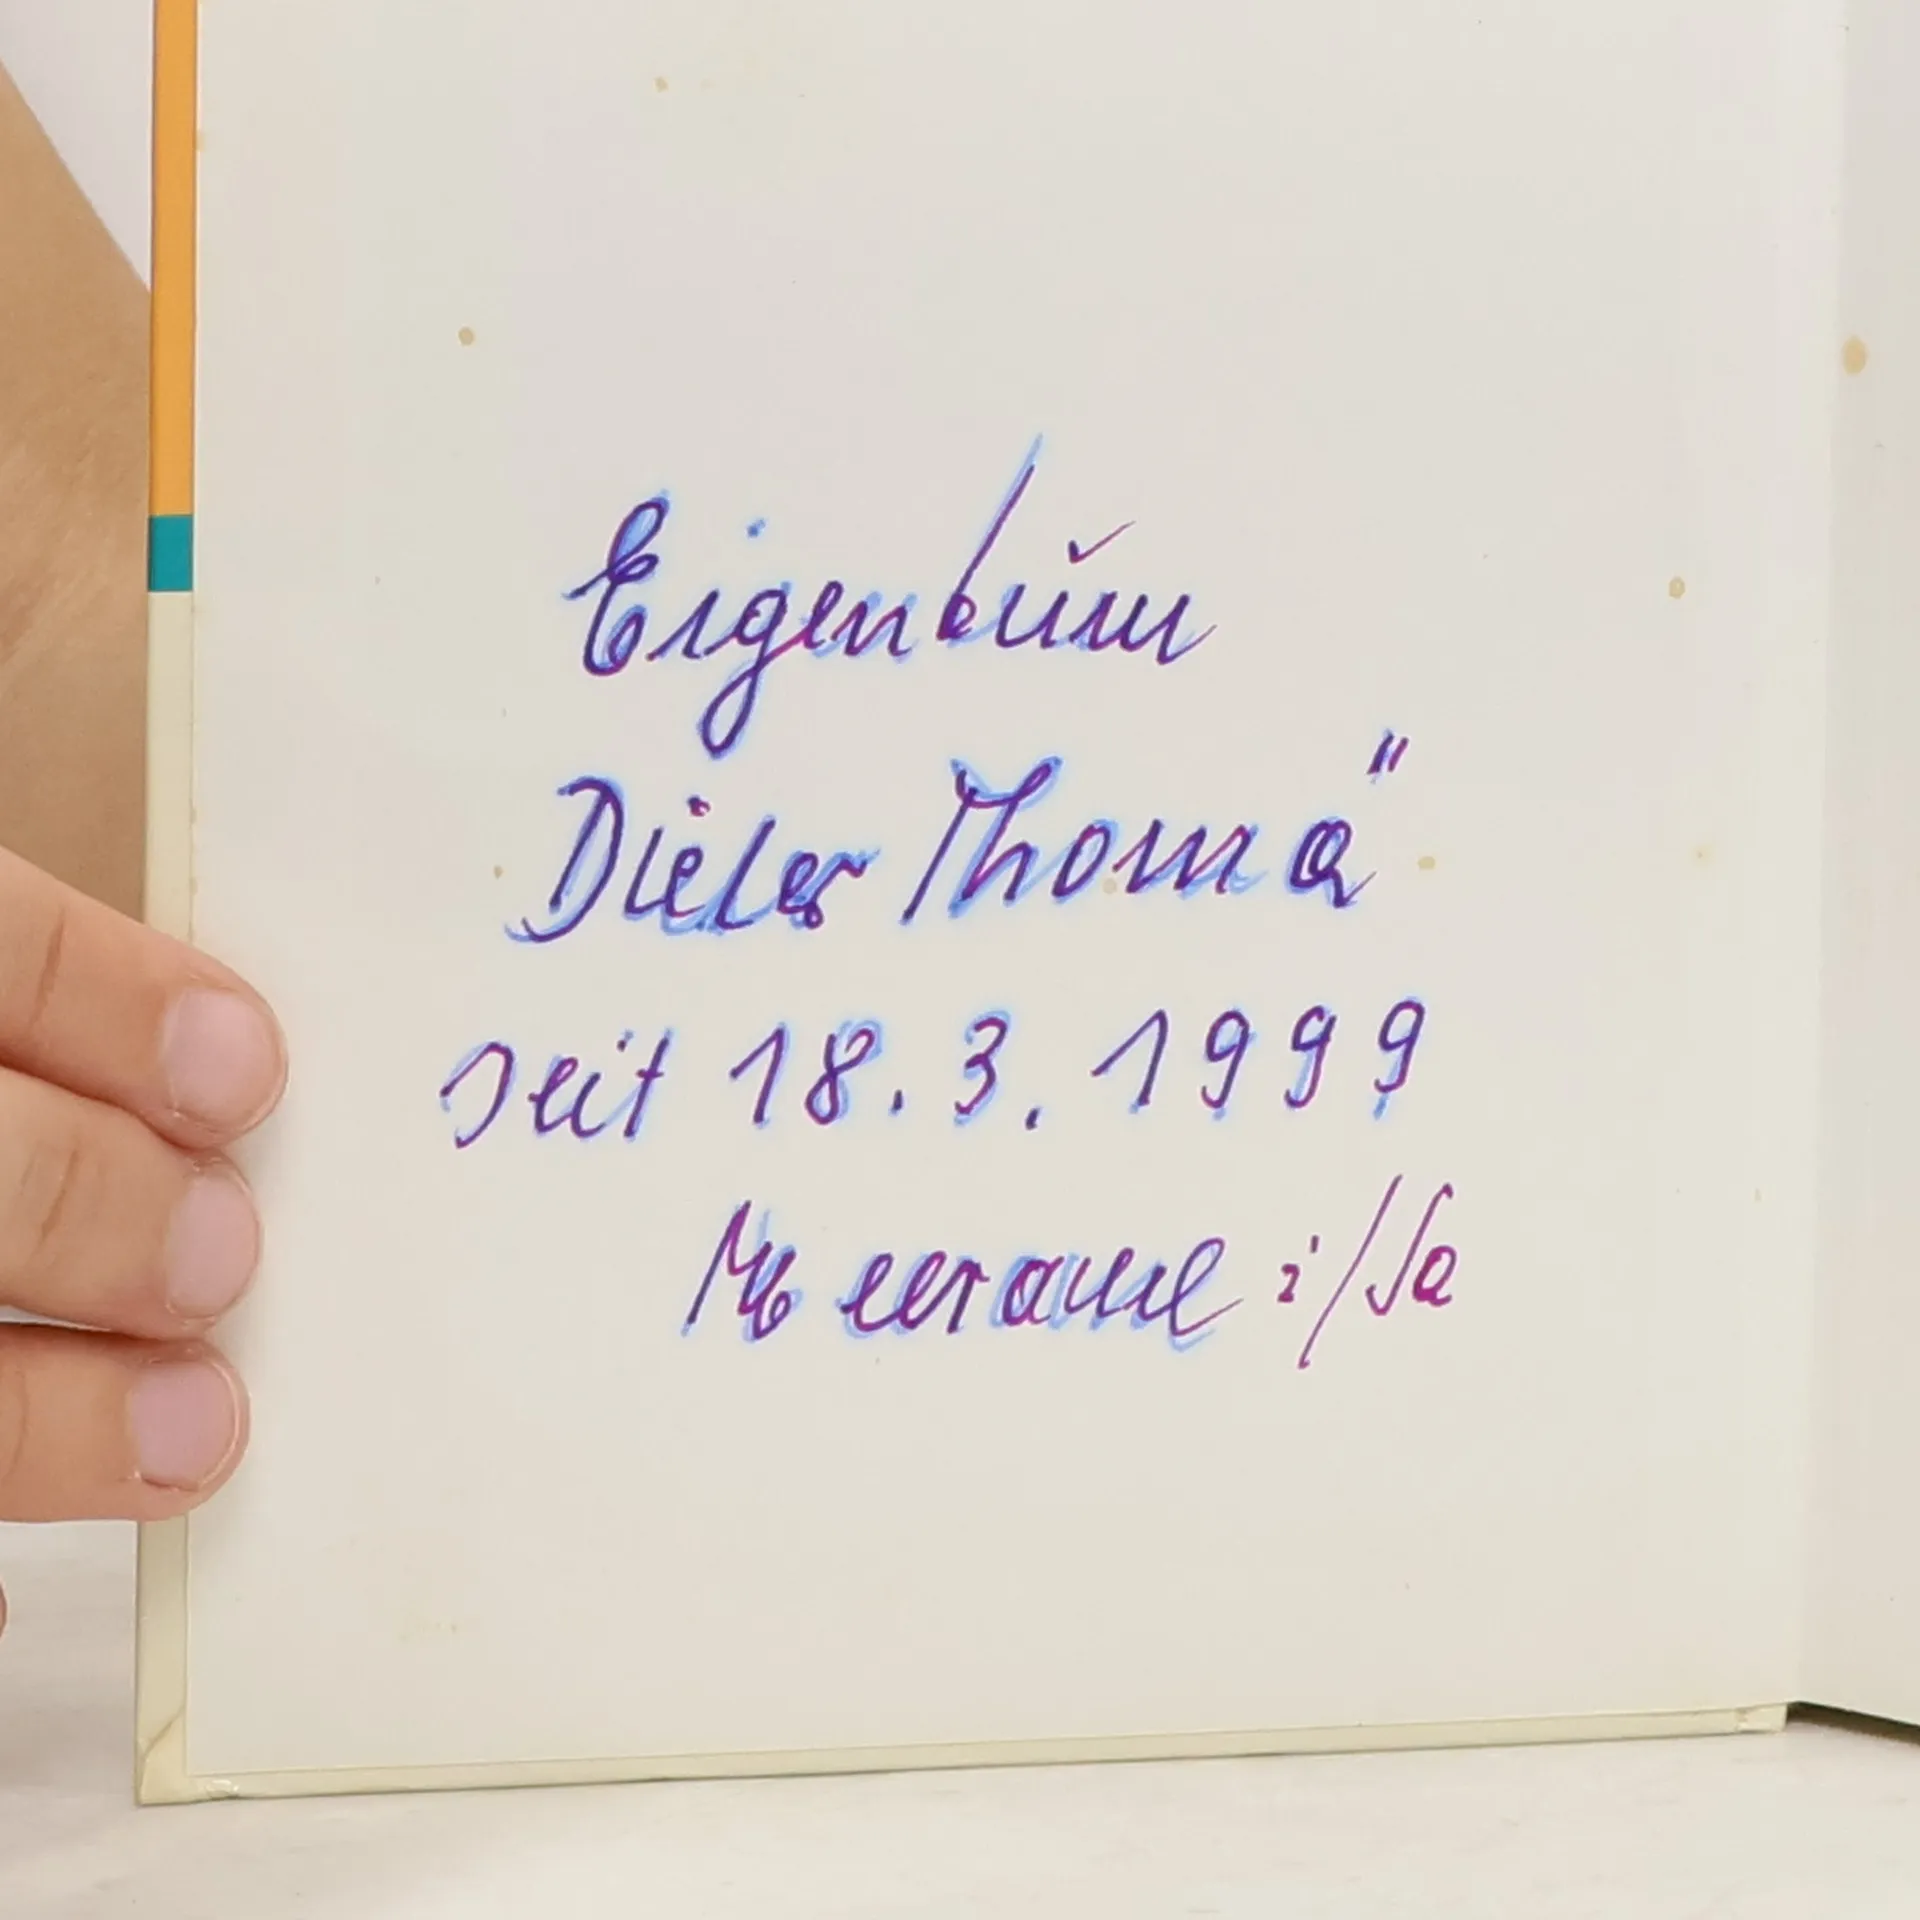 Eigentum
Dieter Thomä
seit 18.3.1999
Meerane i/Sa